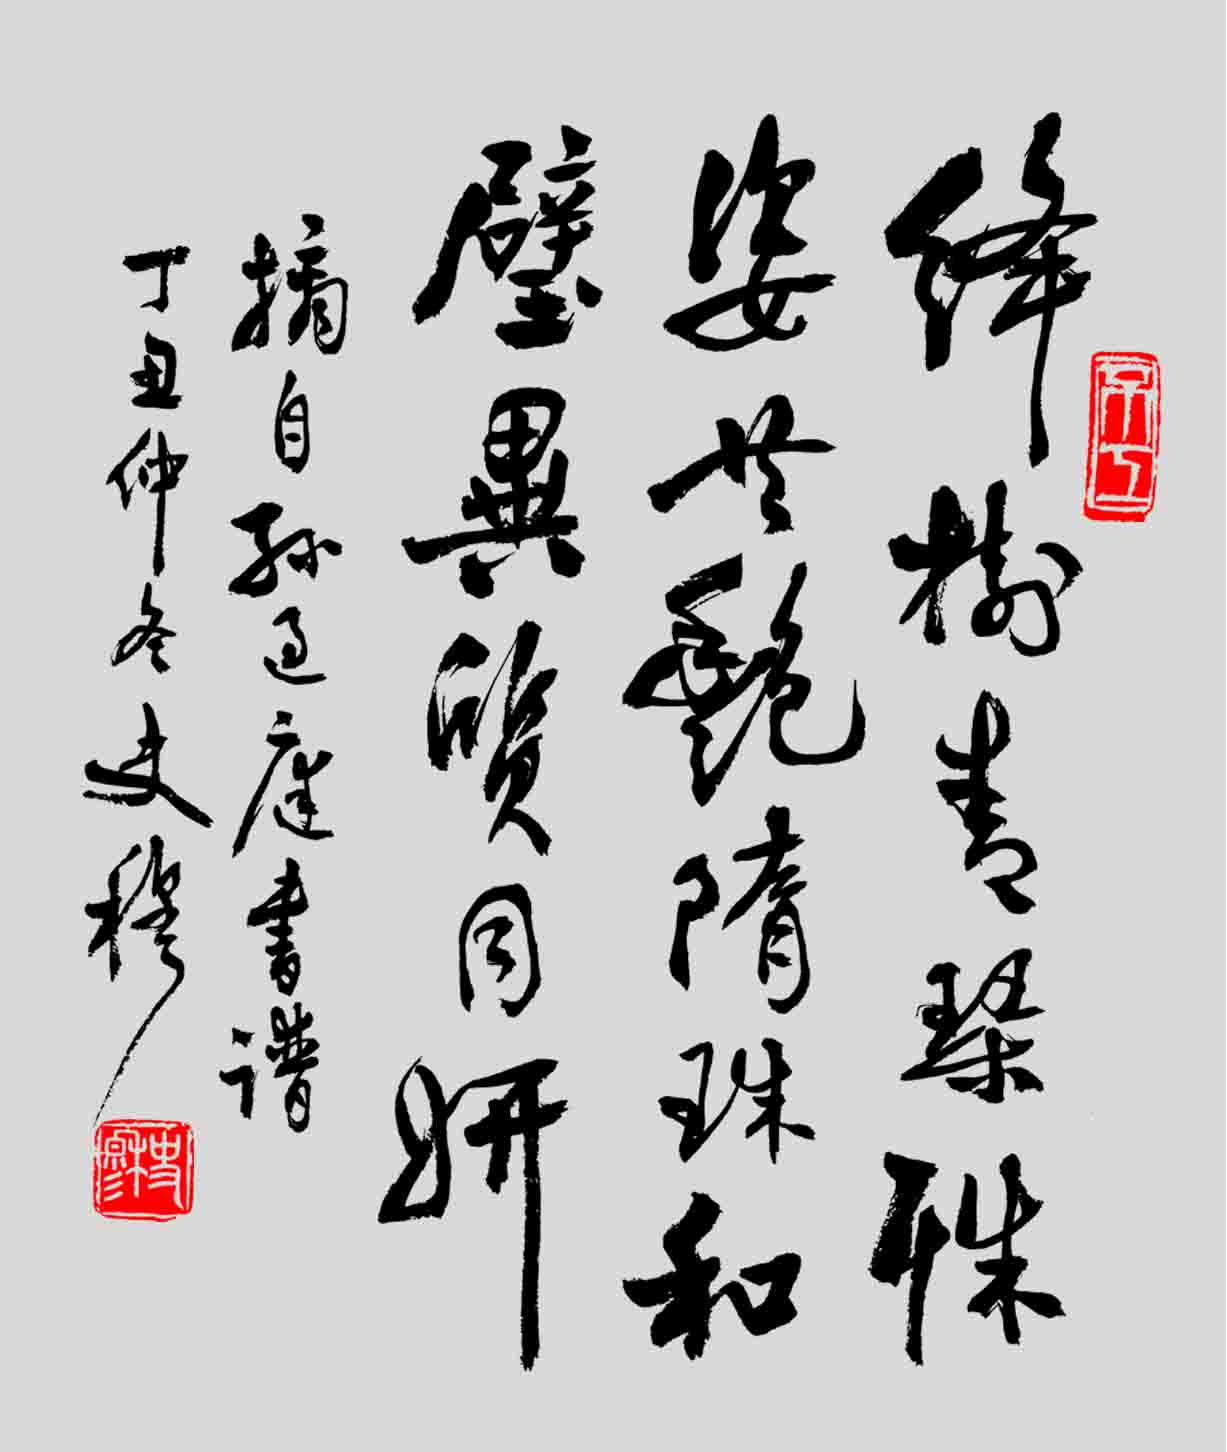 绛树青琴殊
姿共艳隋珠和
璧異质同妍
摘自孙过庭書谱
丁丑仲冬史穆